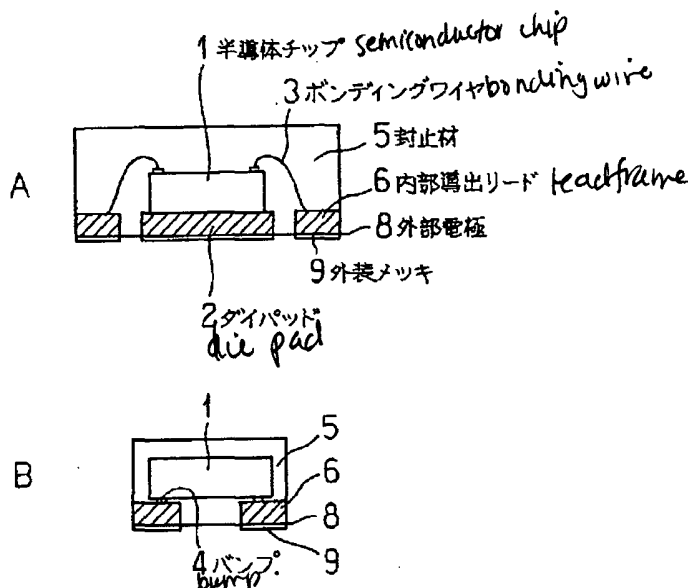 1 半導体チップ semiconductor chip
3 ボンディングワイヤ bonding wire
5 封止材
6 内部導出リード leadframe
A
8 外部電極
9 外装メッキ
2 ダイパッド
die pad
1
5
B
6
8
4 バンプ
9
bump